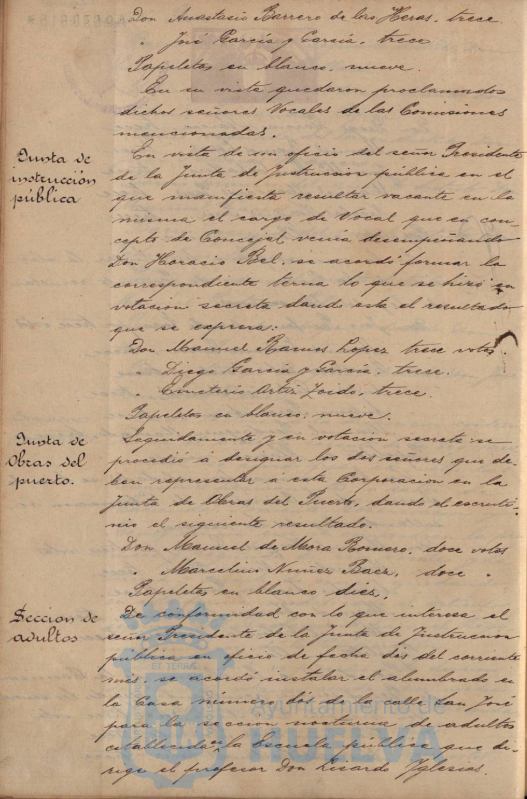 Don Anastasio Barrero de las Heras, trece
" José García y García, trece
Papeletas en blanco, nueve.
En su vista quedaron proclamados
dichos señores Vocales de las Comisiones
mencionadas.
Junta de
instrucción
pública
En vista de un oficio del señor Presidente
de la Junta de Instrucción pública en el
que manifiesta resultar vacante en la
misma el cargo de Vocal que en con-
cepto de Concejal venía desempeñando
Don Horacio Bel, se acordó formar la
correspondiente terna lo que se hizo en
votación secreta dando esta el resultado
que se expresa:
Don Manuel Ramos Lopez trece votos
" Diego García y García, trece.
" Emeterio Ortiz Zoido, trece.
Papeletas en blanco, nueve.
Junta de
Obras del
puerto.
Seguidamente y en votación secreta se
procedió á designar los dos señores que de-
ben representar a esta Corporación en la
Junta de Obras del Puerto, dando el escruti-
nio el siguiente resultado.
Don Manuel de Mora Romero, doce votos
" Marcelino Nuñez Baez, doce "
Papeletas en blanco diez.
Seccion de
adultos
De conformidad con lo que interesa el
señor Presidente de la Junta de Instruccion
pública en oficio de fecha dos del corriente
mes se acordó instalar el alumbrado en
la Casa número dos de la calle San José
para la seccion nocturna de adultos
establecida en la Escuela pública que di-
rige el profesor Don Lisardo Yglesias.
Ayuntamiento de
HUELVA